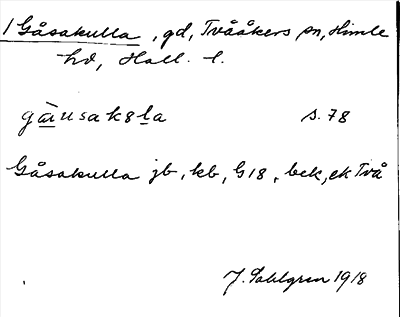 1 Gåsakulla, gd, Tvååkers sn, Himle
hd, Hall. l.
s. 78
Gåsakulla jb, kb, G18, bek, ek Två
J. Sahlgren 1918